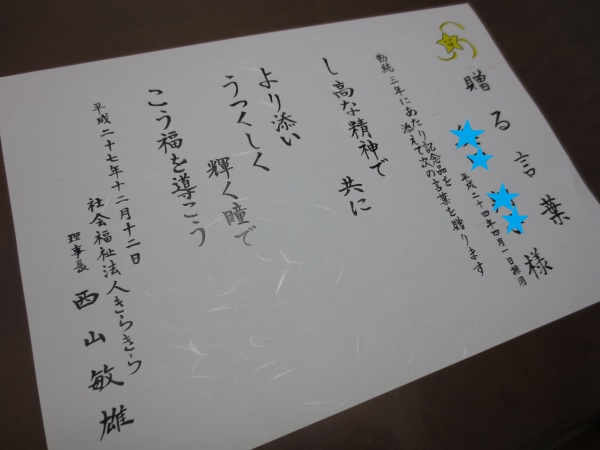 贈る言葉
様
平成二十四年四月一日採用
勤続三年にあたり記念品を
添えて次の言葉を贈ります
し高な精神で 共に
より添い
うつくしく
輝く瞳で
こう福を導こう
平成二十七年十二月十二日
社会福祉法人きらきら
理事長 西山敏雄